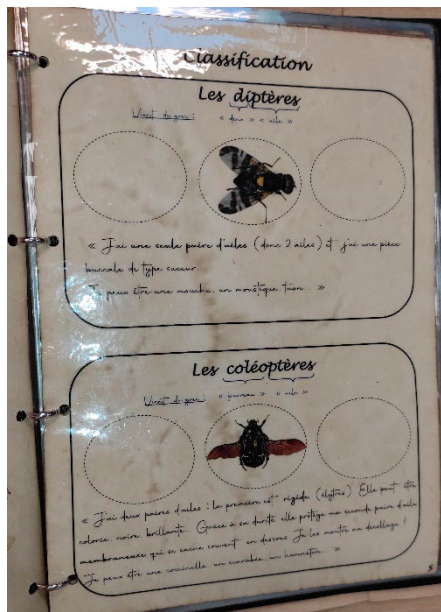 Classification
Les diptères
Vient du grec : « deux » « aile »
« J'ai une seule paire d'ailes (donc 2 ailes) et j'ai une pièce
buccale de type suceur.
Je peux être une mouche, un moustique, taon... »
Les coléoptères
Vient du grec : « fourreau » « aile »
« J'ai deux paires d'ailes : la première est rigide (élytres). Elle peut être
colorée, noire, brillante... Grâce à sa dureté elle protège ma seconde paire d'aile
membraneuse qui se cache souvent en dessous. Je les montre au décollage !
Je peux être une coccinelle, un scarabée, un hanneton... »